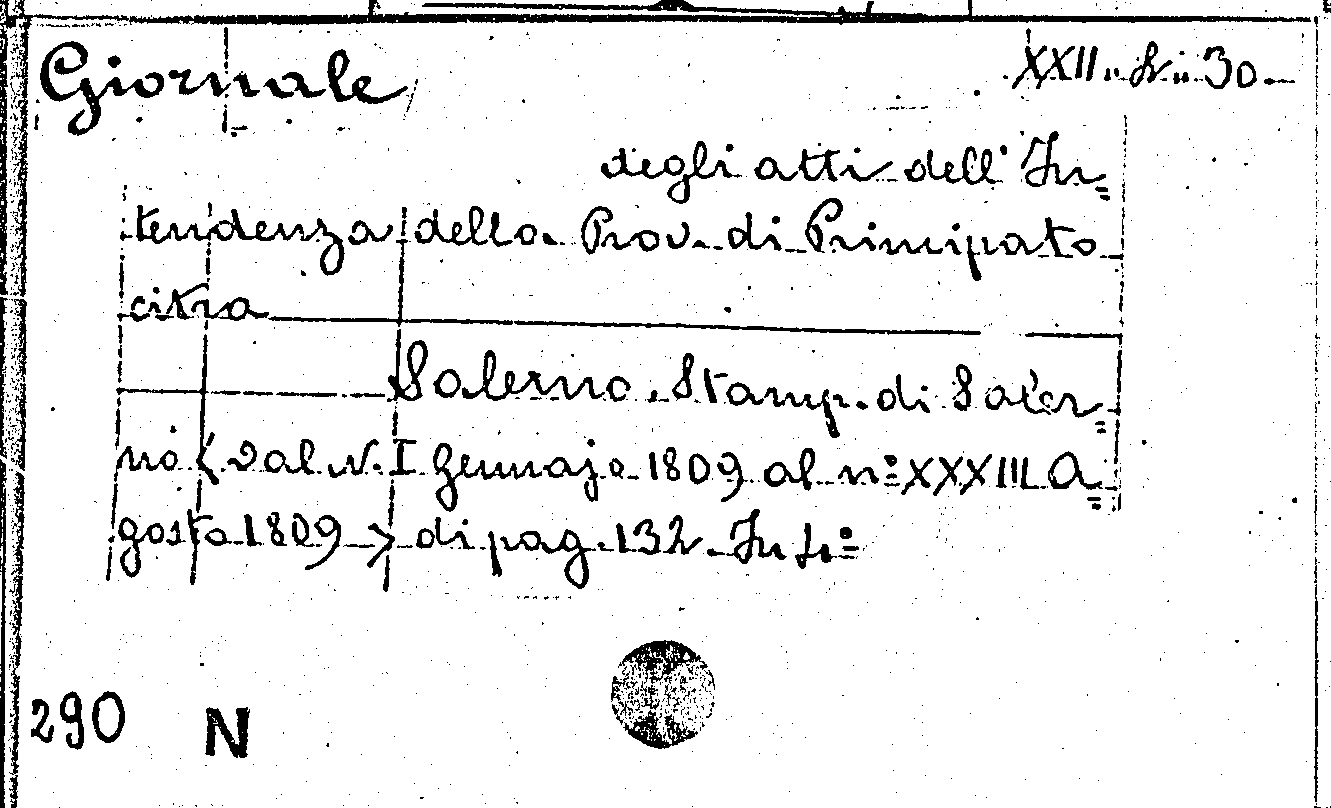 Giornale
XXII. N. 30
degli atti dell' In=
tendenza della Prov. di Principato
citra
Salerno, Stamp. di Saler=
no < Dal N. I Gennajo 1809 al nº XXXIII. A=
gosto 1809 > di pag. 132. In 4º
290 N